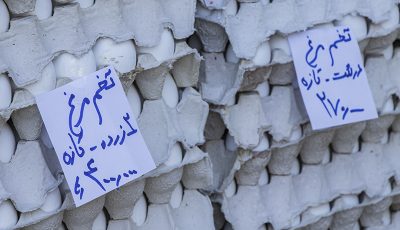 تخم مرغ
۲ زرده - تازه
۴۰۰,۰۰
تخم مرغ
درشت - تازه
۲۷,۰۰۰